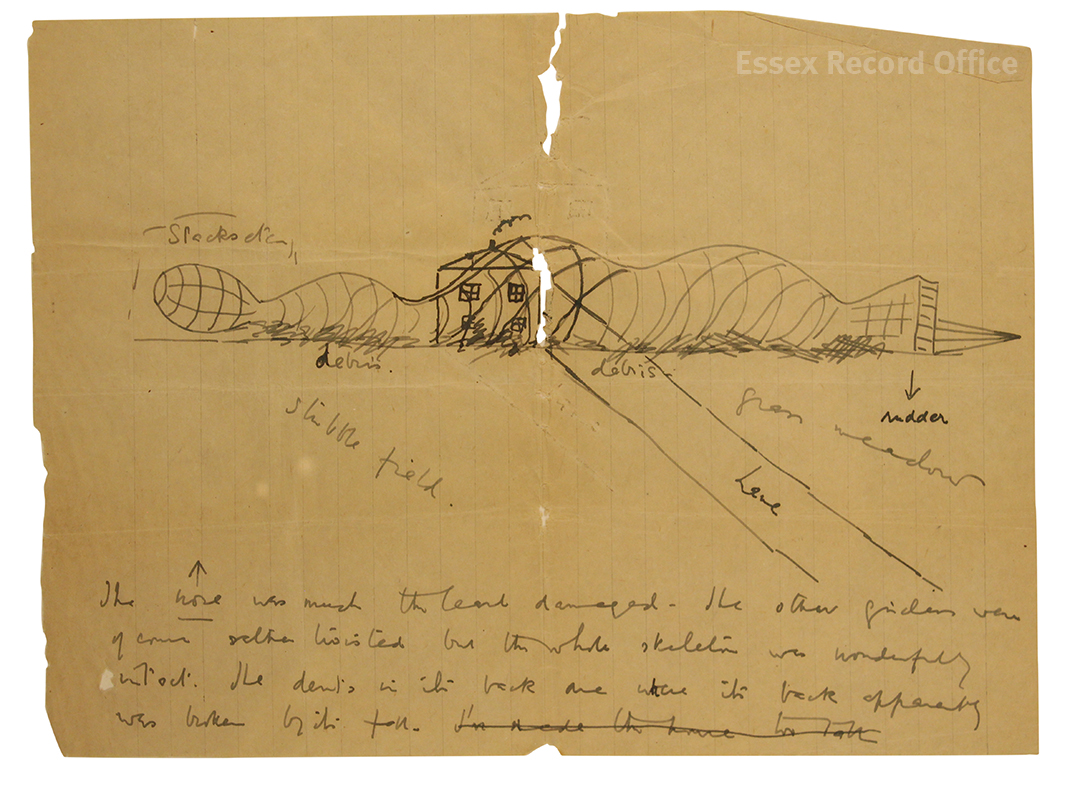 Essex Record Office
debris.
debris.
stubble field.
grass meadow
rudder
Lane
The nose was much the least damaged - The other girders were
of course rather twisted but the whole skeleton was wonderfully
intact. The dents in its back are where its back apparently
was broken by its fall. I've made the house too tall